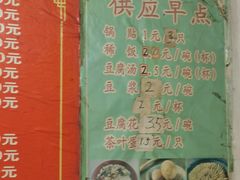 供应早点
锅贴1元3只
稀饭2.0元/碗(杯)
豆腐汤2.5元/碗(杯)
豆浆2元/碗
2元/杯
豆腐花3.5元/碗
茶叶蛋1.5元/只
0元
0元
0元
0元
0元
0元
0元